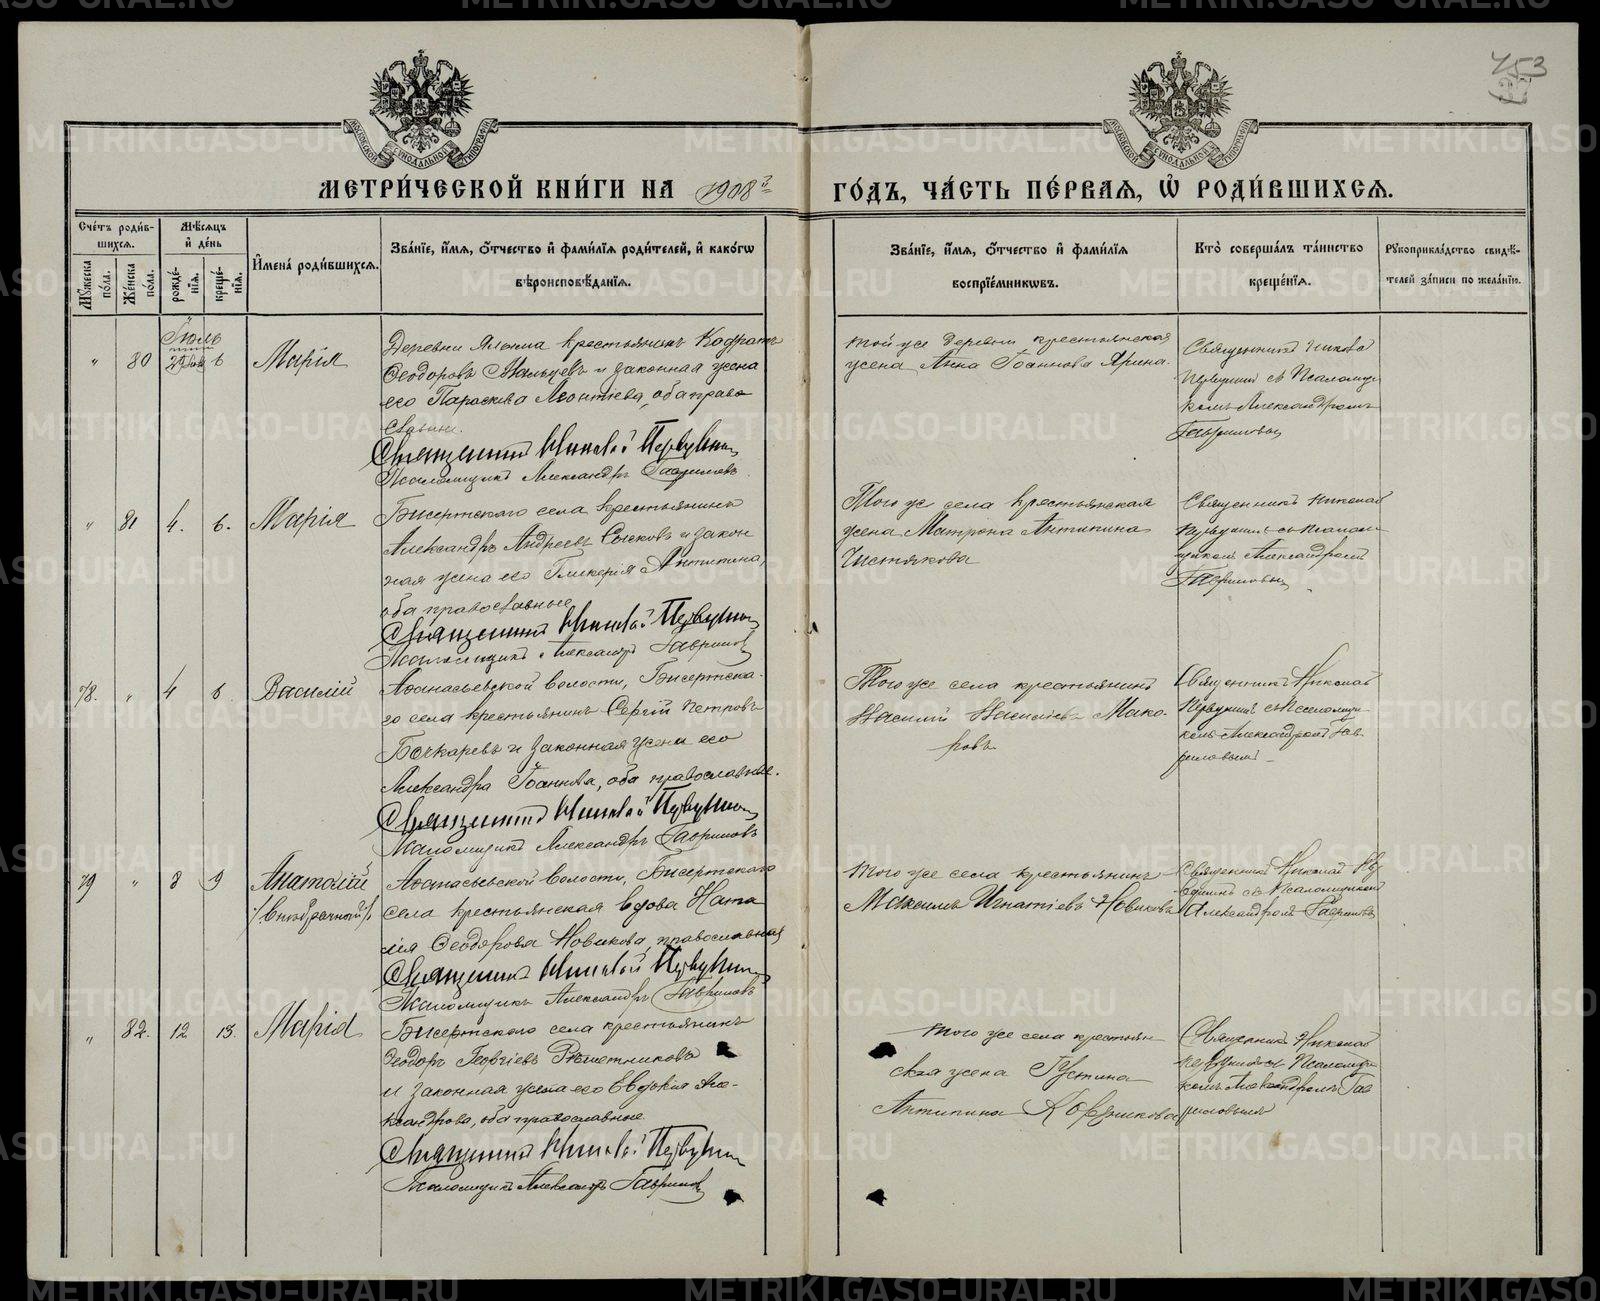 453
МОСКОВСКОЙ СѴНОДАЛЬНОЙ ТИПОГРАФІИ
МОСКОВСКОЙ СѴНОДАЛЬНОЙ ТИПОГРАФІИ
МЕТРИ́ЧЕСКОЙ КНИ́ГИ НА 1908 ГО́ДЪ, ЧА́СТЬ ПЕ́РВАЯ, Ѽ РОДИ́ВШИХСЯ.
Сче́тъ роди́в-
шихся.
Му́жеска по́ла.
Же́нска по́ла.
Мѣ́сяцъ
и҆ де́нь
рожде́-
нїя.
креще́-
нїя.
И҆мена̀ роди́вшихся.
Зва́нїе, и҆́мя, о҆́тчество и҆ фами́лїя роди́телей, и҆ како́гѡ
вѣроисповѣ́данїя.
Зва́нїе, и҆́мя, о҆́тчество и҆ фами́лїя
воспрїе́мникѡвъ.
Кто̀ соверша́лъ та́инство
креще́нїя.
Рукоприкла́дство свидѣ́-
телей за́писи по жела́нїю.
Іюль
„ 80 6 Марія
Деревни крестьянинъ Кодратъ
Ѳеодоровъ Мальцевъ и законная жена
его Параскева Леонтіева, оба право
славные.
Священникъ Николай Первушинъ
Псаломщикъ Александръ Гавриловъ
той же деревни крестьянская
жена Анна Іоаннова
Священникъ Николай
Первушинъ съ Псаломщи
комъ Александромъ
Гавриловымъ
„ 81 4. 6. Марія
Бисертскаго села крестьянинъ
Александръ Андреевъ Сысковъ и закон
ная жена его Гликерія Антипина,
оба православные
Священникъ Николай Первушинъ
Псаломщикъ Александръ Гавриловъ
Того же села крестьянская
жена Матрона Антипина
Чистякова
Священникъ Николай
Первушинъ съ Псалом
щикомъ Александромъ
Гавриловымъ
78. „ 4 6 Василій
Аѳанасьевской волости, Бисертска-
го села крестьянинъ Сергій Петровъ
Бочкаревъ и законная жена его
Александра Іоаннова, оба православные.
Священникъ Николай Первушинъ
Псаломщикъ Александръ Гавриловъ
Того же села крестьянинъ
Василій Василіевъ Мако-
ровъ
Священникъ Николай
Первушинъ съ Псаломщи
комъ Александромъ Гав
риловымъ
79 „ 8 9 Анатолій
/:внѣбрачный:/
Аѳанасьевской волости, Бисертскаго
села крестьянская вдова Ната
лія Ѳеодорова Новикова, православная
Священникъ Николай Первушинъ
Псаломщикъ Александръ Гавриловъ
того же села крестьянинъ
Максимъ Игнатіевъ Новиковъ
Священникъ Николай Пер
вушинъ съ Псаломщикомъ
Александромъ Гавриловымъ
„ 82. 12 13. Марія
Бисертскаго села крестьянинъ
Ѳеодоръ Георгіевъ Рѣшетниковъ
и законная жена его Евдокія Але-
ксандрова, оба православные
Священникъ Николай Первушинъ
Псаломщикъ Александръ Гавриловъ
того же села крестьян
ская жена Іустина
Антипина
Священникъ Николай
Первушинъ съ Псаломщи
комъ Александромъ Гав
риловымъ
METRIKI.GASO-URAL.RU